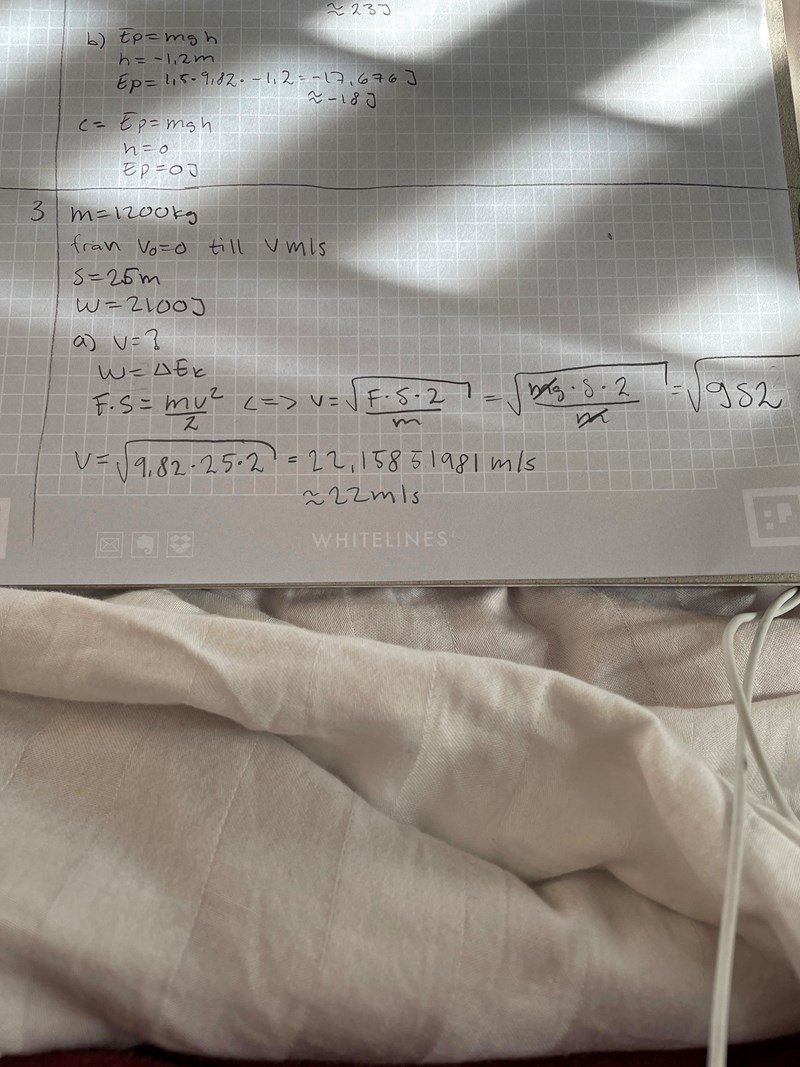 ≈ 23J
b) Ep = mgh
h = -1,2m
Ep = 1,5·9,82·-1,2 = -17,676J
≈ -18J
c = Ep = mgh
h = 0
Ep = 0J
3 m = 1200kg
från V₀=0 till V m/s
S = 25m
W = 2100J
a) V = ?
W = ΔEk
F·S = mv²/2 <=> V = √(F·S·2/m) = √(mg·S·2/m) = √gS2
V = √(9,82·25·2) = 22,15851981 m/s
≈ 22m/s
WHITELINES